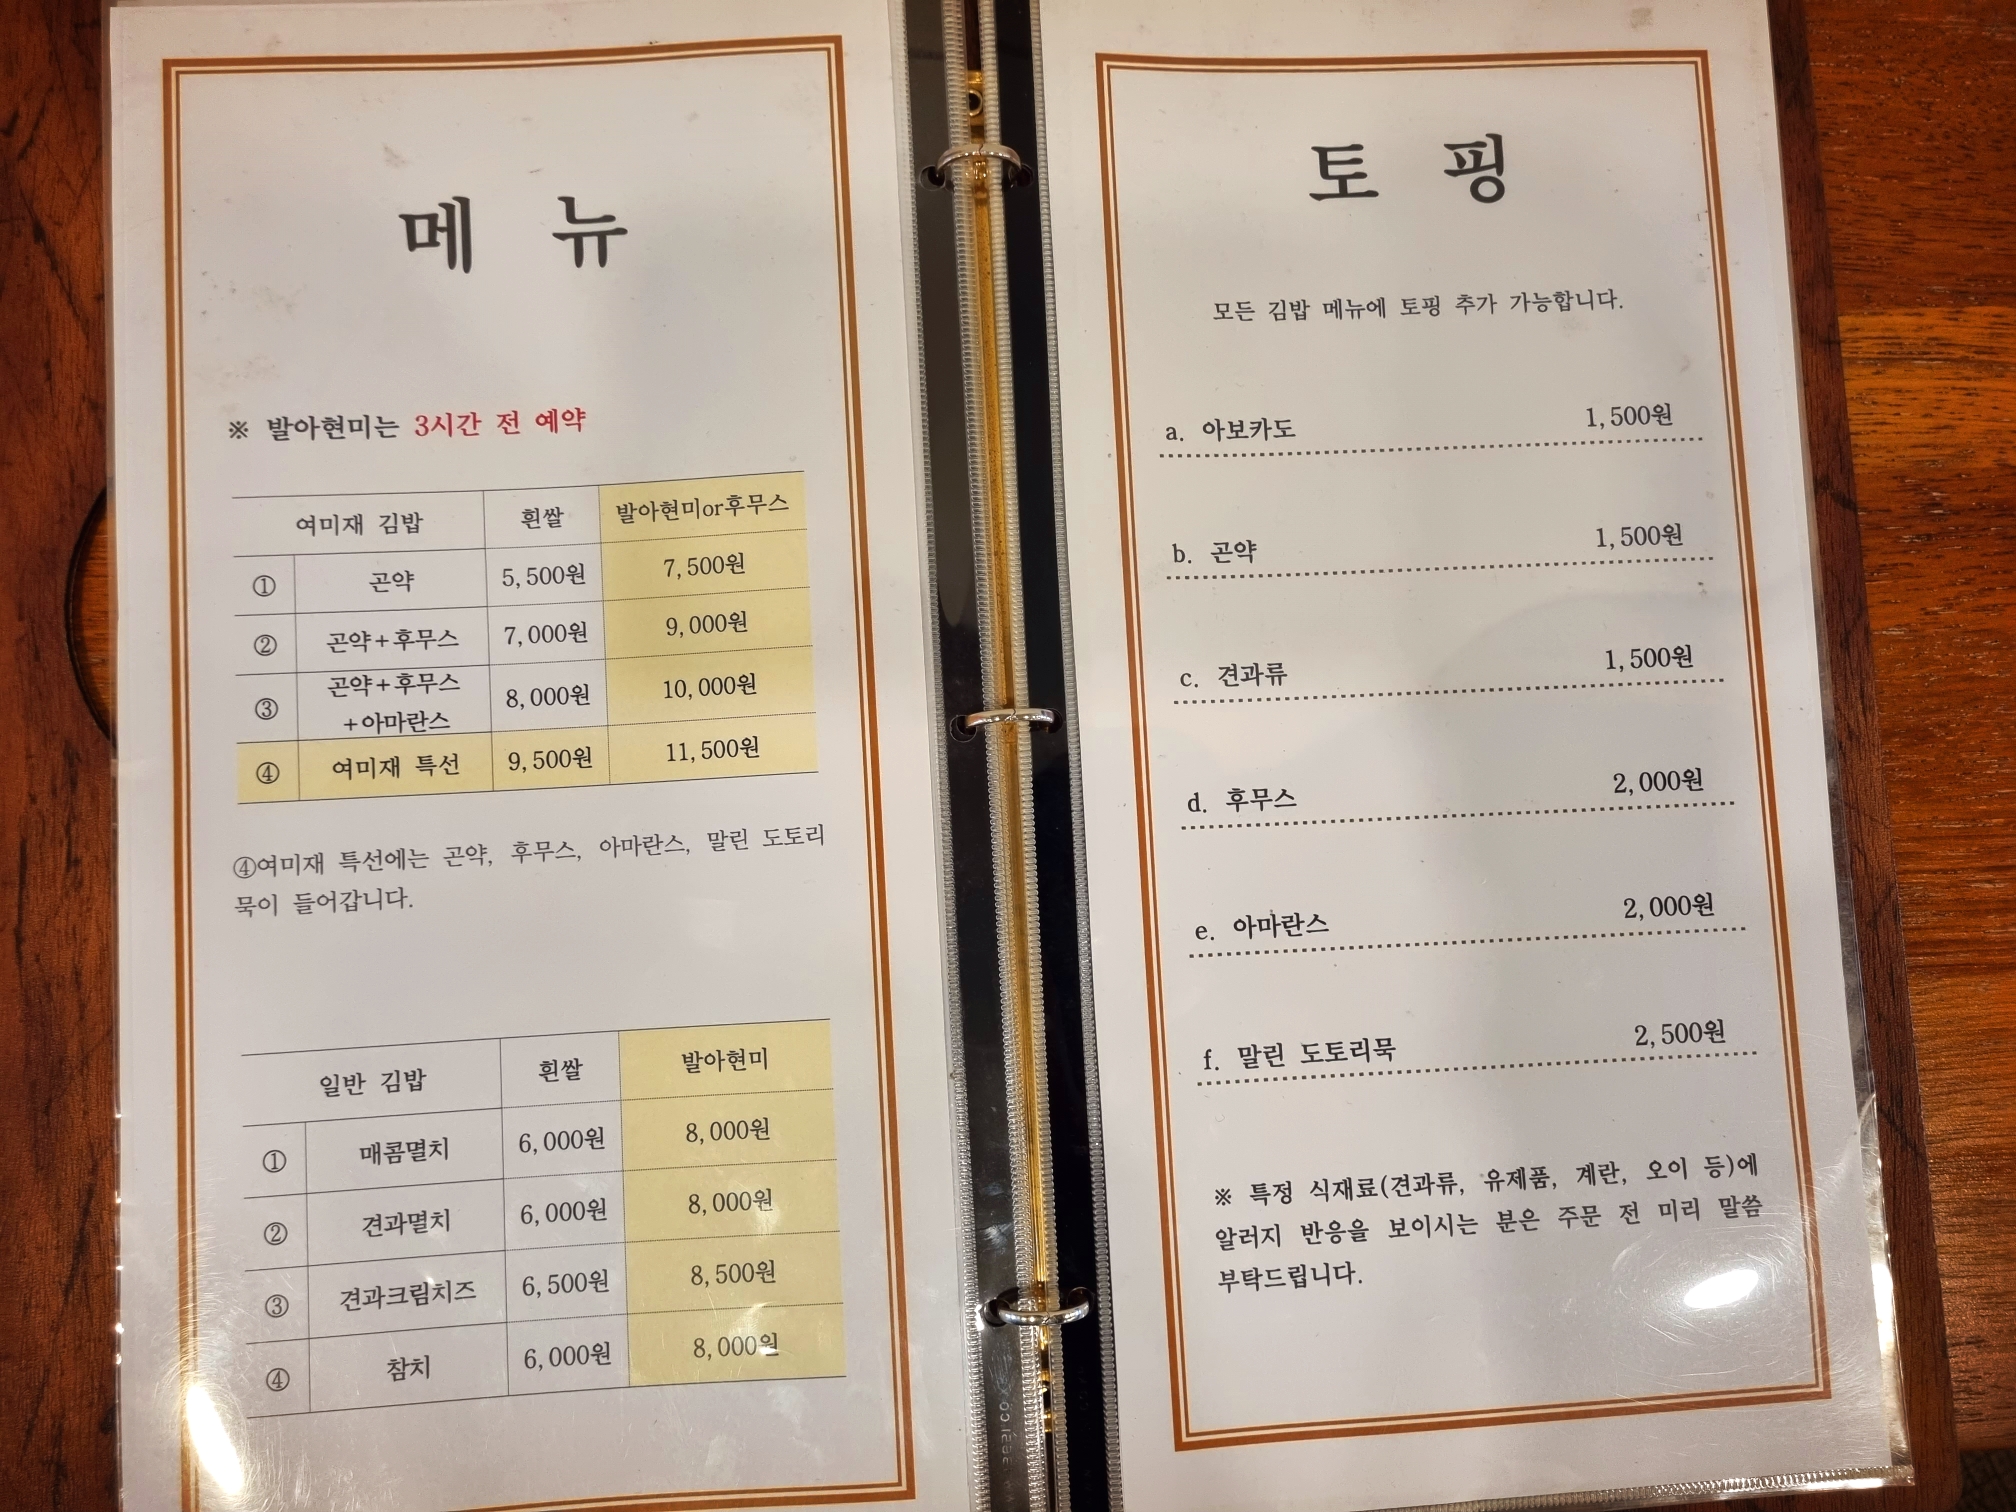 메 뉴
※ 발아현미는 3시간 전 예약
여미재 김밥 흰쌀 발아현미or후무스
① 곤약 5,500원 7,500원
② 곤약+후무스 7,000원 9,000원
③ 곤약+후무스
+아마란스 8,000원 10,000원
④ 여미재 특선 9,500원 11,500원
④여미재 특선에는 곤약, 후무스, 아마란스, 말린 도토리
묵이 들어갑니다.
일반 김밥 흰쌀 발아현미
① 매콤멸치 6,000원 8,000원
② 견과멸치 6,000원 8,000원
③ 견과크림치즈 6,500원 8,500원
④ 참치 6,000원 8,000원
토 핑
모든 김밥 메뉴에 토핑 추가 가능합니다.
a. 아보카도 1,500원
b. 곤약 1,500원
c. 견과류 1,500원
d. 후무스 2,000원
e. 아마란스 2,000원
f. 말린 도토리묵 2,500원
※ 특정 식재료(견과류, 유제품, 계란, 오이 등)에
알러지 반응을 보이시는 분은 주문 전 미리 말씀
부탁드립니다.